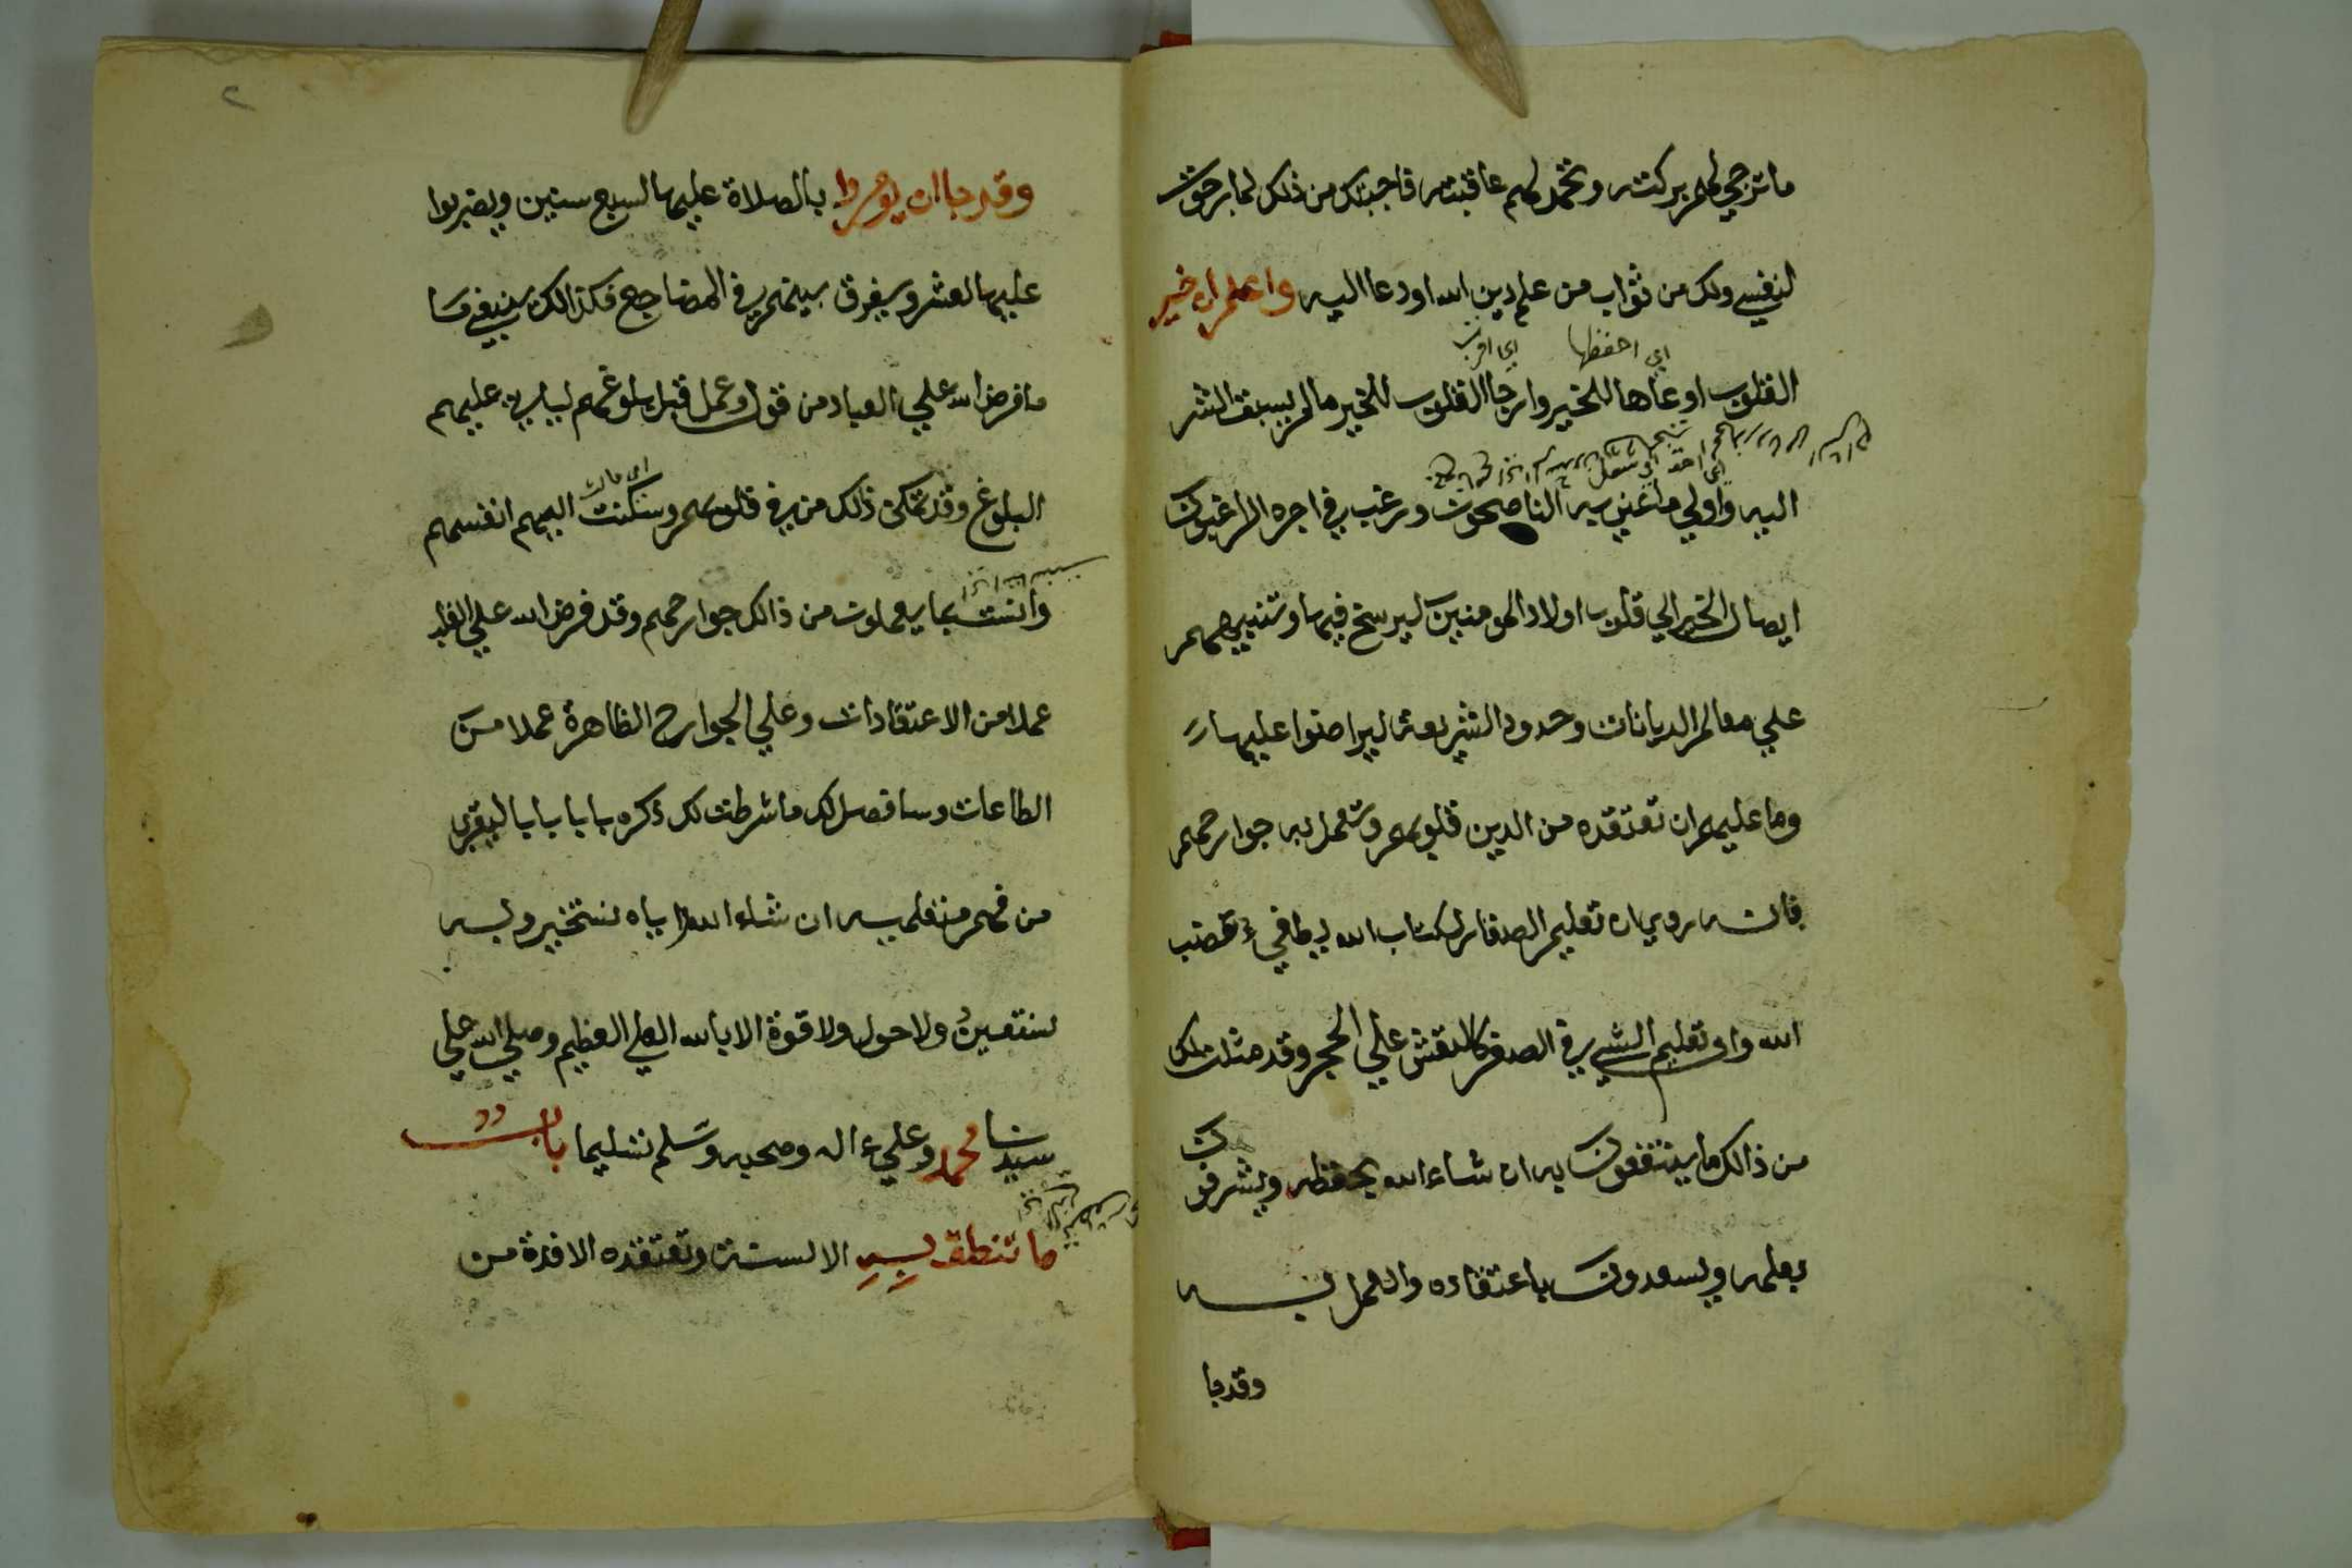 ما ترجي لهم بركته وتحمد لهم عاقبته فاجبتك من ذلك لما رجوت
لنفسي ولك من ثواب من علم دين الله او دعا اليه واعلم ان خير
اي احفظها اي اقرب
القلوب اوعاها للخير وارجا القلوب للخير ما لم يسبق الشر
اي احق
اليه واولي ما عني به الناصحون ورغب في اجره الراغبون
ايصال الخير الي قلوب اولاد المومنين ليرسخ فيها وتنبيههم
علي معالم الديانات وحدود الشريعة ليراضوا عليها
وما عليهم ان تعتقده من الدين قلوبهم وتعمل به جوارحهم
فانه روي ان تعليم الصغار لكتاب الله يطافي غضب
الله وان تعليم الشي في الصغر كالنقش علي الحجر وقد مثلت لك
من ذالك ما ينتفعون به ان شاء الله بحفظه ويشرفون
بعلمه ويسعدون باعتقاده والعمل به
وقد جا
٢
وقد جا ان يومروا بالصلاة عليها لسبع سنين ويضربوا
عليها لعشر ويفرق بينهم في المضاجع فكذالك ينبغي
ما فرض الله علي العباد من قول وعمل قبل بلوغهم لياتي عليهم
اي مالت
البلوغ وقد تمكن ذلك من في قلوبهم وسكنت اليهم انفسهم
وانست بما يعملون من ذالك جوارحهم وقد فرض الله علي القلب
عملا من الاعتقادات وعلي الجوارح الظاهرة عملا من
الطاعات وسافصل لك ما شرطت لك ذكره بابا بابا ليقرب
من فهم متعلميه ان شاء الله واياه نستخير وبه
نستعين ولا حول ولا قوة الا بالله العلي العظيم وصلي الله علي
سيدنا محمد وعلي ءاله وصحبه وسلم تسليما باب
ما تنطق به الالسنة وتعتقده الافدة من